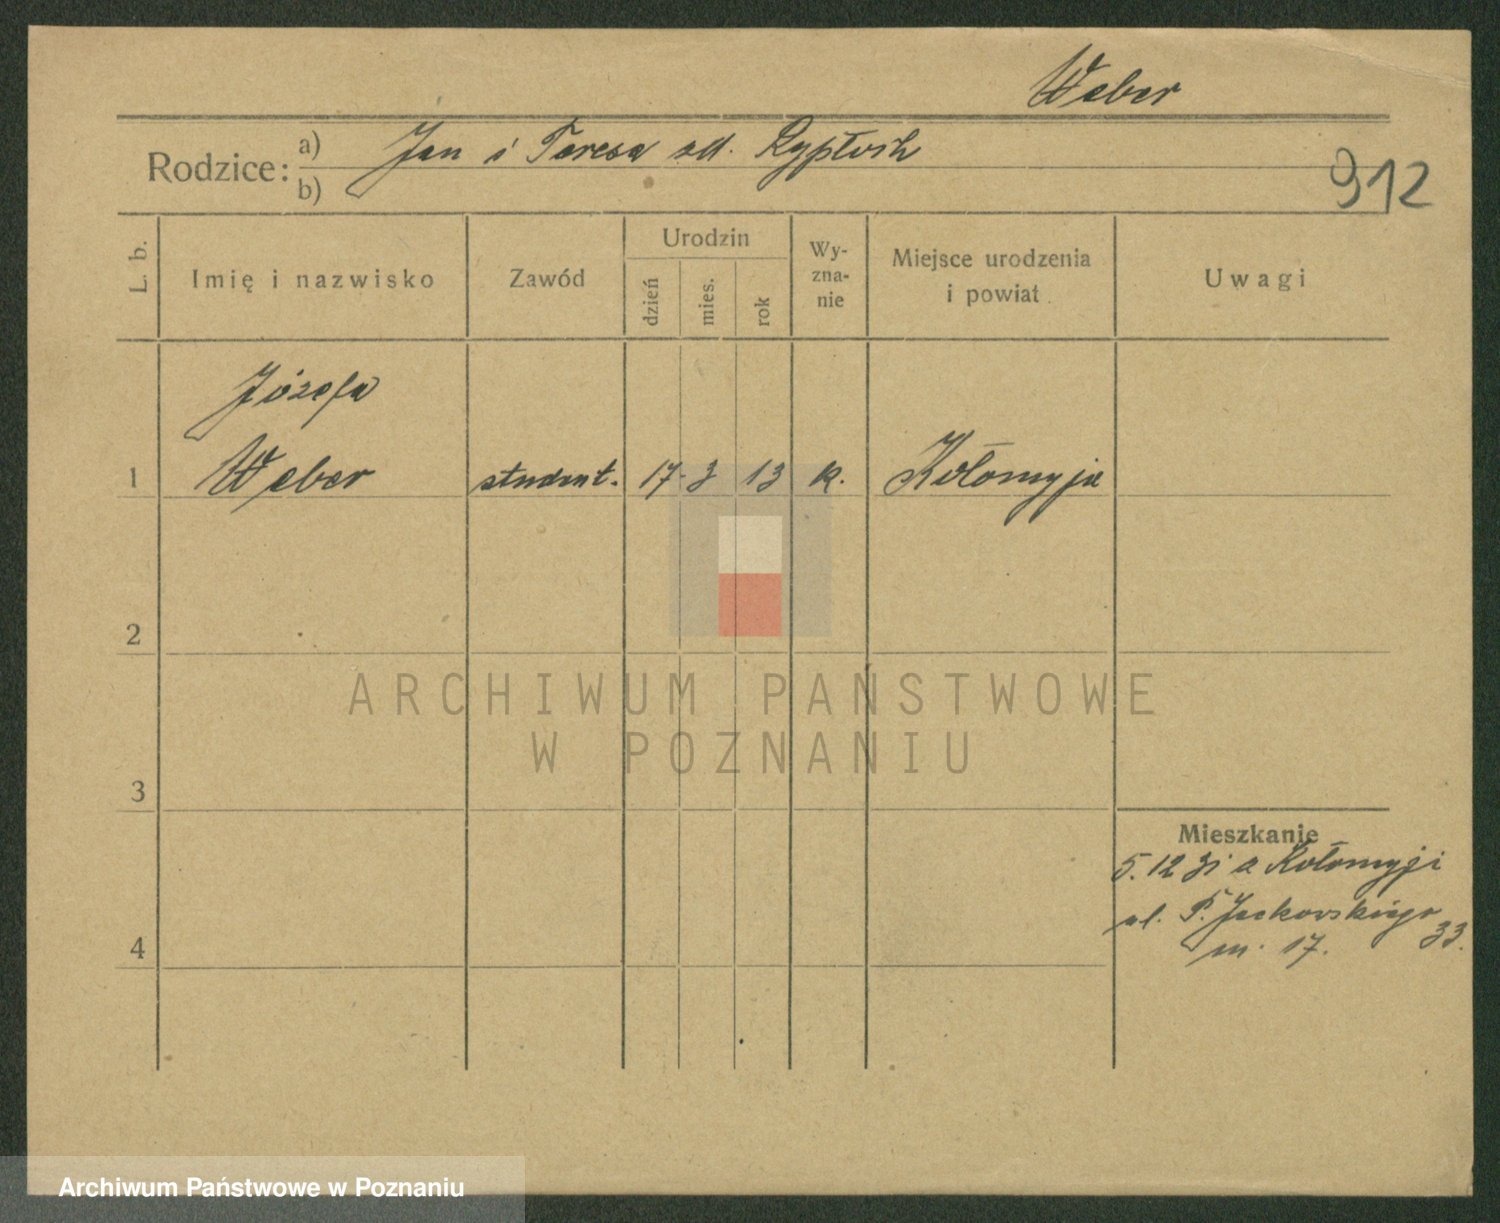 Weber
Rodzice: a) Jan i Teresa zd.
b)
912
L. b.
Imię i nazwisko
Zawód
Urodzin
dzień
mies.
rok
Wy-
zna-
nie
Miejsce urodzenia
i powiat
Uwagi
Józefa
1 Weber student. 17. 3 13 k. Kołomyja
2
ARCHIWUM PAŃSTWOWE
W POZNANIU
3
Mieszkanie
5. 12 31 z Kołomyji
ul. P. Jackowskiego
33.
m. 17.
4
Archiwum Państwowe w Poznaniu